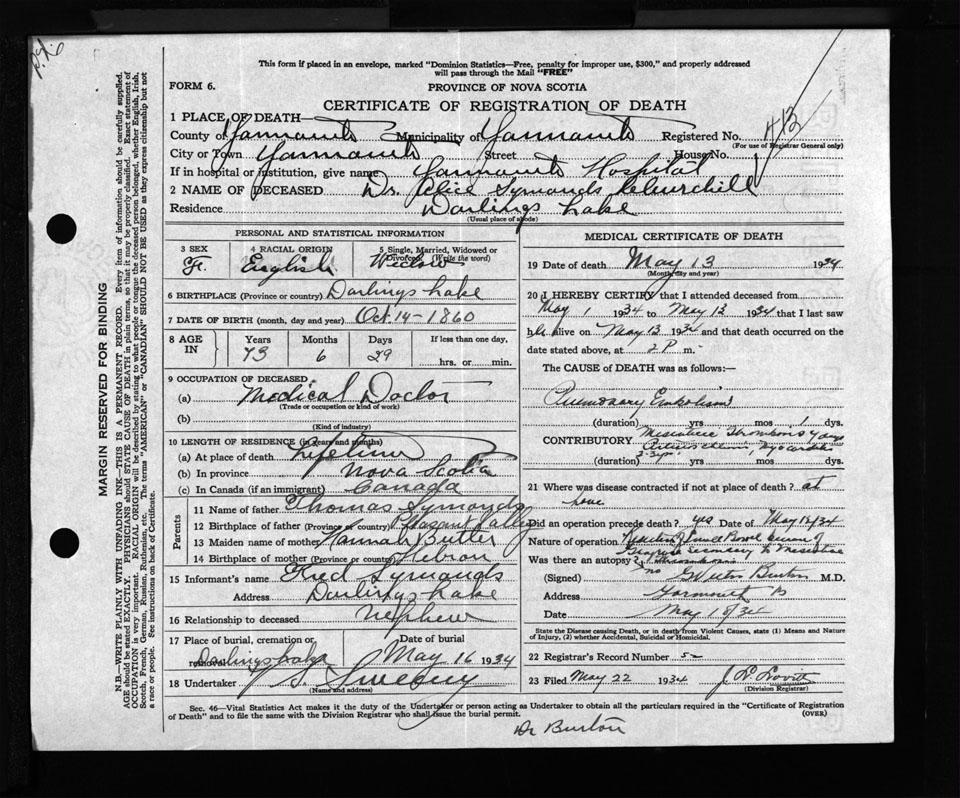 This form if placed in an envelope, marked "Dominion Statistics—Free, penalty for improper use, $300," and properly addressed
will pass through the Mail "FREE"
FORM 6.
PROVINCE OF NOVA SCOTIA
CERTIFICATE OF REGISTRATION OF DEATH
1 PLACE OF DEATH—
County of Yarmouth Municipality of Yarmouth Registered No. 413
(For use of Registrar General only)
City or Town Yarmouth Street House No.
If in hospital or institution, give name Yarmouth Hospital
2 NAME OF DECEASED Dr. Alice Symonds Churchill
Residence Darlings Lake
(Usual place of abode)
PERSONAL AND STATISTICAL INFORMATION
3 SEX F. 4 RACIAL ORIGIN English 5 Single, Married, Widowed or Divorced (Write the word) Widow
6 BIRTHPLACE (Province or country) Darlings Lake
7 DATE OF BIRTH (month, day and year) Oct. 14-1860
8 AGE IN Years 73 Months 6 Days 29 If less than one day, hrs. or min.
9 OCCUPATION OF DECEASED
(a) Medical Doctor
(Trade or occupation or kind of work)
(b)
(Kind of industry)
10 LENGTH OF RESIDENCE (in years and months)
(a) At place of death Lifetime
(b) In province Nova Scotia
(c) In Canada (if an immigrant) Canada
Parents
11 Name of father Thomas Symonds
12 Birthplace of father (Province or country) Pleasant Valley
13 Maiden name of mother Hannah Butler
14 Birthplace of mother (Province or country) Hebron
15 Informant's name Fred Symonds
Address Darlings Lake
16 Relationship to deceased nephew
17 Place of burial, cremation or removal Darlings Lake Date of burial May 16 1934
18 Undertaker Sweeny
(Name and address)
MEDICAL CERTIFICATE OF DEATH
19 Date of death May 13 1934
(Month, day and year)
20 I HEREBY CERTIFY that I attended deceased from
May 1 1934 to May 13 1934 that I last saw
her alive on May 13 1934 and that death occurred on the
date stated above, at 2 P m.
The CAUSE of DEATH was as follows:—
Pulmonary Embolism
(duration) yrs mos 1 days
CONTRIBUTORY Mesenteric Thrombosis 4 days
(duration)
21 Where was disease contracted if not at place of death? at
home
Did an operation precede death? yes Date of May 12/34
Nature of operation
Gangrene secondary to Mesenteric
Was there an autopsy? no
(Signed) Burton M.D.
Address Yarmouth NS
Date May 18/34
State the Disease causing Death, or in death from Violent Causes, state (1) Means and Nature
of Injury, (2) whether Accidental, Suicidal or Homicidal.
22 Registrar's Record Number 52
23 Filed May 22 1934 Lovitt
(Division Registrar)
Sec. 46—Vital Statistics Act makes it the duty of the Undertaker or person acting as Undertaker to obtain all the particulars required in the "Certificate of Registration
of Death" and to file the same with the Division Registrar who shall issue the burial permit.
(OVER)
Dr Burton
MARGIN RESERVED FOR BINDING
N.B.—WRITE PLAINLY WITH UNFADING INK—THIS IS A PERMANENT RECORD. Every item of information should be carefully supplied.
AGE should be stated EXACTLY. PHYSICIANS should STATE CAUSE OF DEATH in plain terms, so that it may be properly classified. Exact statement of
OCCUPATION is very important. RACIAL ORIGIN will be described by stating to what people or tongue the deceased person belonged, whether English, Irish,
Scotch, French, German, Russian, Ruthenian, etc. The terms "AMERICAN" or "CANADIAN" SHOULD NOT BE USED as they express citizenship but not
a race or people. See instructions on back of Certificate.